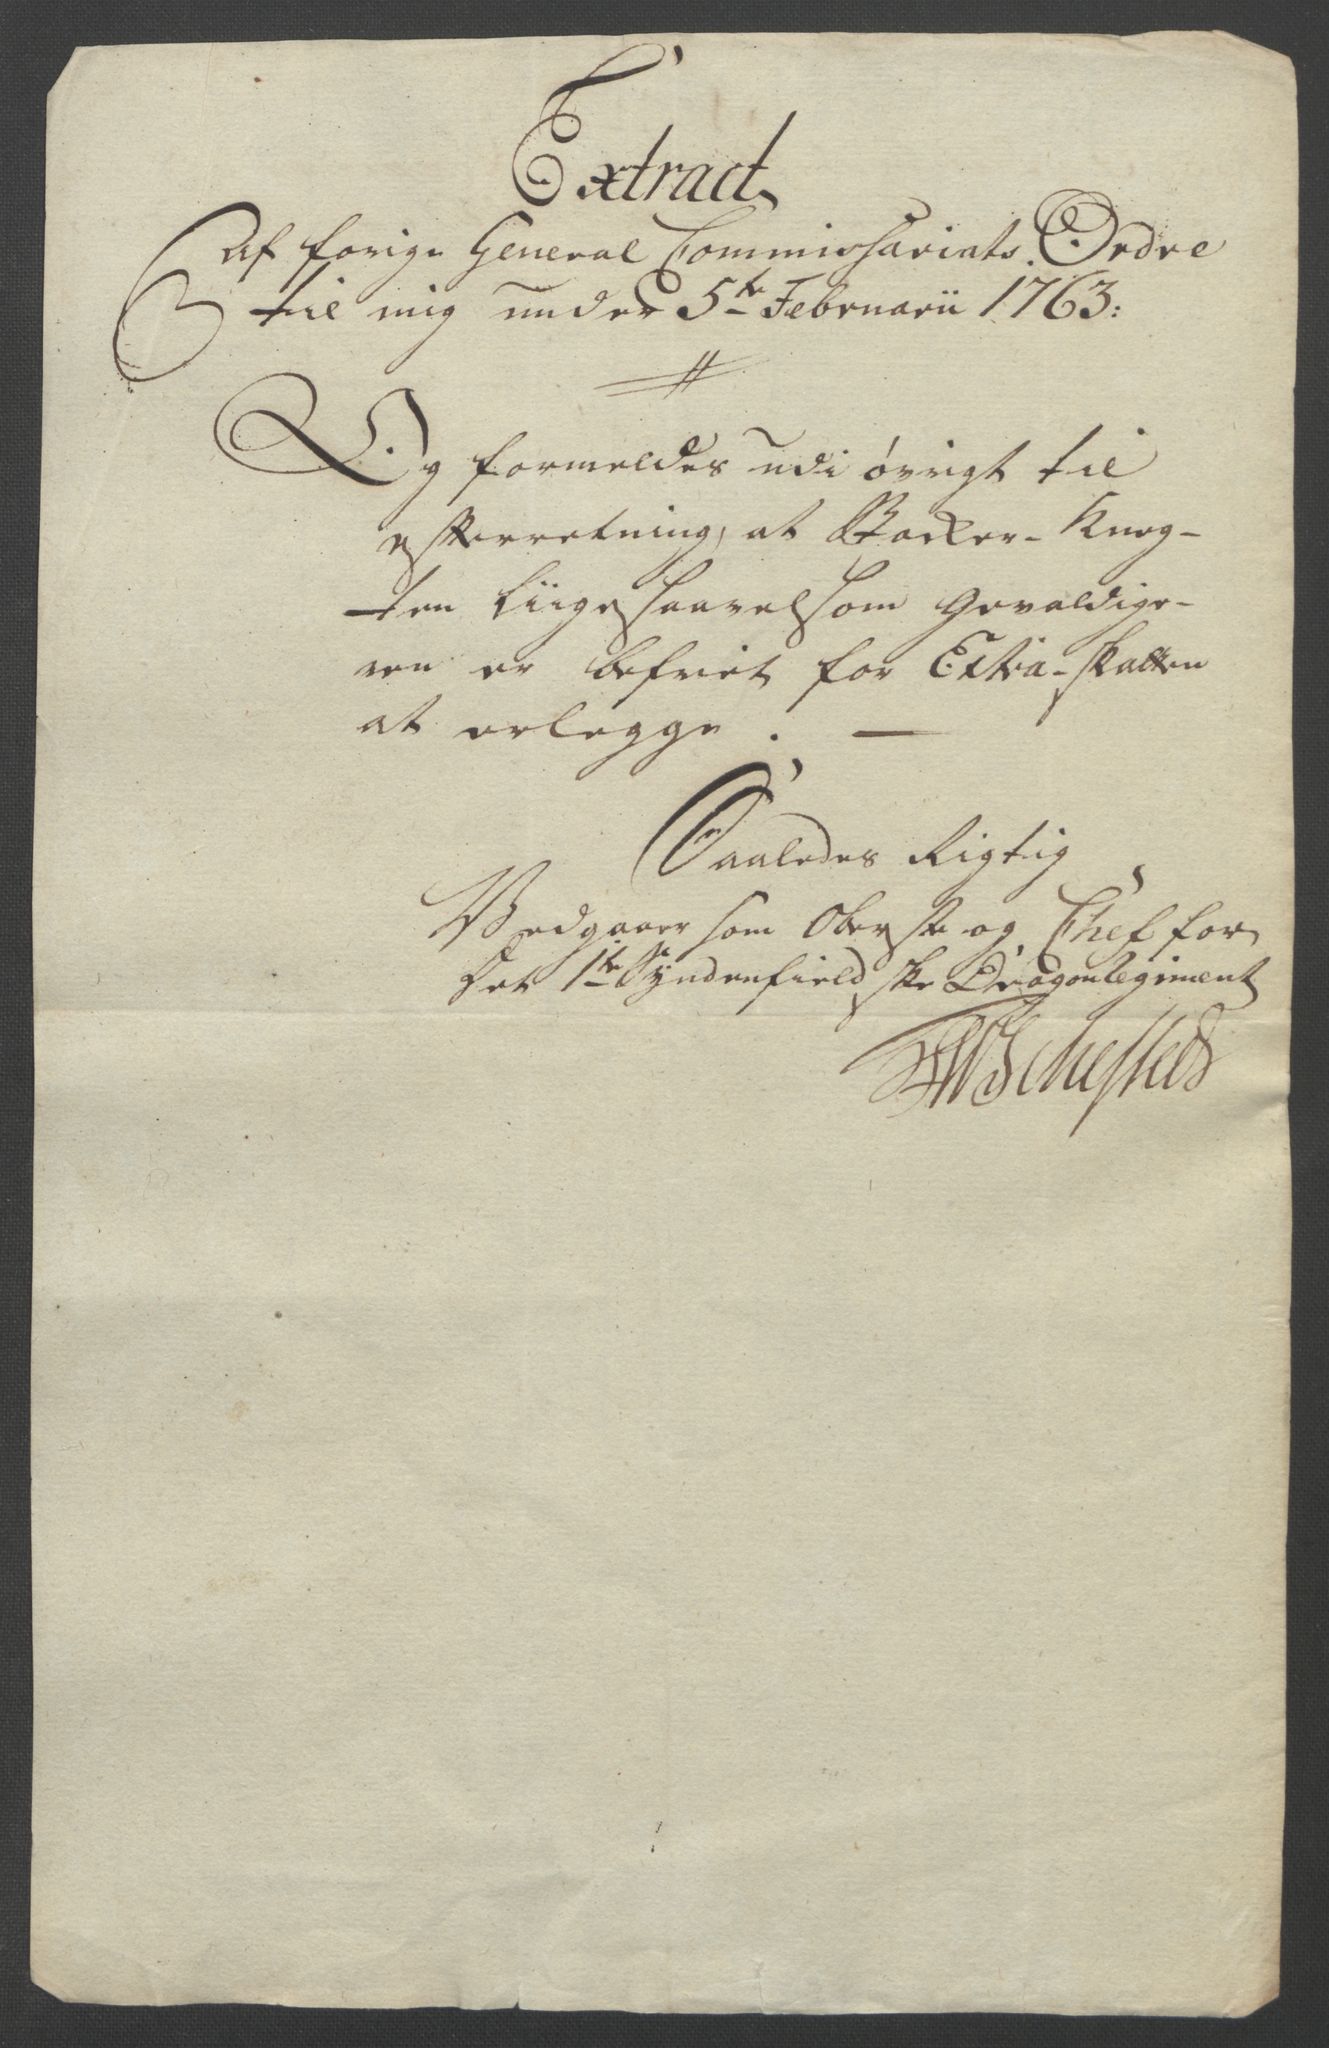 Extract
Af forige General Commissariats Ordre
til mig under 5te Februarii 1763:
Og formeldes udi øvrigt til
efterretning, at Stocker-Kneg-
ten liigesaavelsom Gevaldige-
ren er befriet for Extra-skatten
at erlegge. —
Saaledes Rigtig
Vedgaaer som Oberste og Chef for
Det 1te Syndenfieldske Dragonregiment